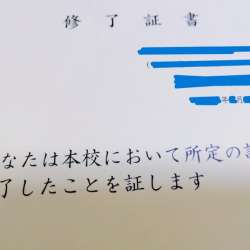 修了証書
年 月
なたは本校において所定の
了したことを証します